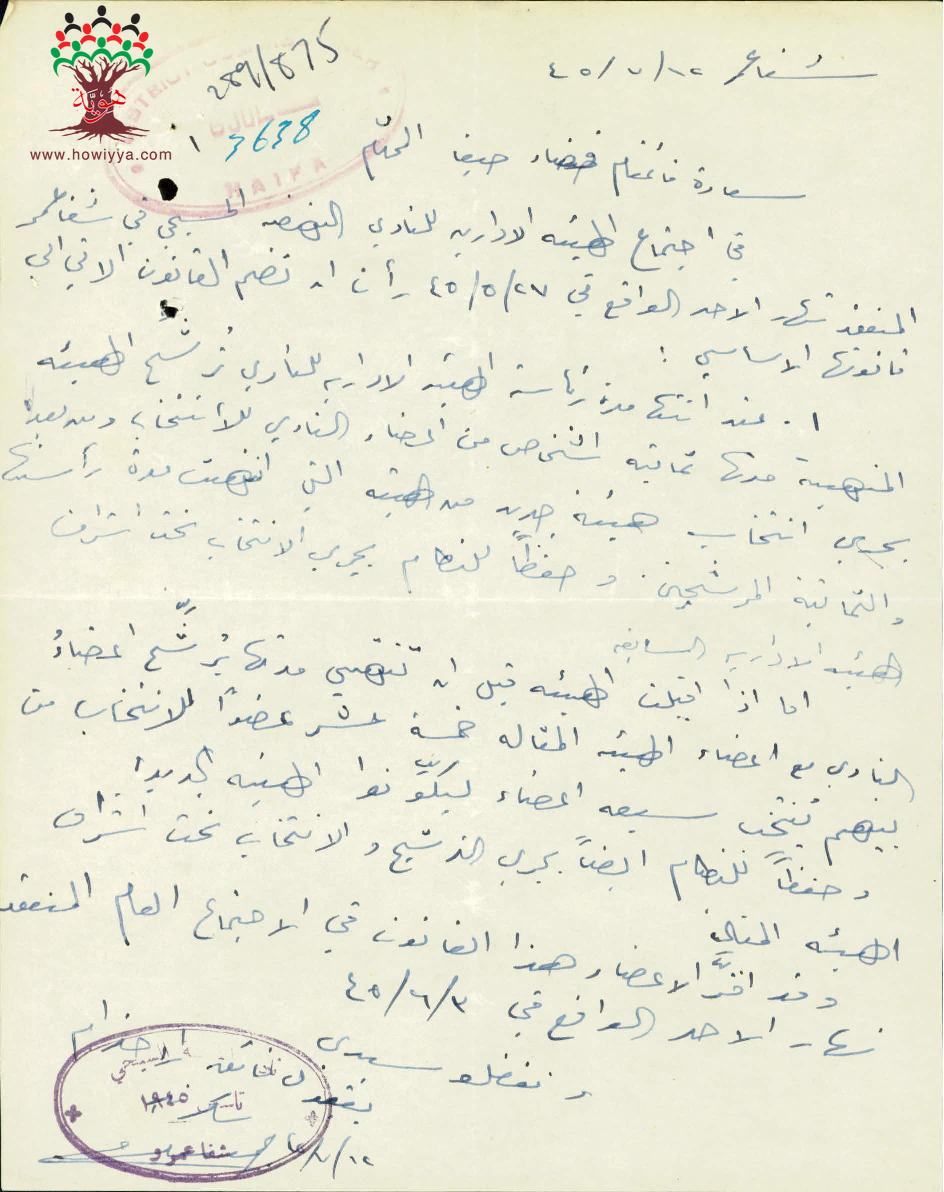 هوية
www.howiyya.com
289/875
3638
DISTRICT COMMISSIONER
HAIFA
شفاعمرو ١٢/٧/٤٥
سعادة قائمقام قضاء حيفا المحترم
في اجتماع الهيئه الاداريه للنادي النهضه المسيحي في شفاعمرو
المنعقد نهار الاحد الواقع في ٢٧/٥/٤٥ رأت ان تضم القانون الاتي الى
قانونها الاساسي :
١. عند انتهاء مدة رئاسة الهيئه الاداريه للنادي تُرشّح الهيئه
المنتهية مدتها ثمانيه اشخاص من اعضاء النادي للأنتخاب ومن بعد
يجري انتخاب هيئة جديده من الهيئه التي انتهت مدة رأستها
والثمانية المرشحين. وحفظاً للنظام يجري الانتخاب تحت اشراف
الهيئه الاداريه السابقه
اما اذا اقيلت الهيئه قبل ان تنتهي مدتها يُرشّح اعضاءُ
النادي مع اعضاء الهيئه المقاله خمسة عشر عضواً للانتخاب من
بينهم يُنتخب سبعه اعضاء ليكوّنوا الهيئه الجديدة
وحفظاً للنظام ايضاً يجري الترشيح والانتخاب تحت اشراف
الهيئه المقالة
وقد اقرَّ الاعضاء هذا القانون في الاجتماع العام المنعقد
نهار الاحد الواقع في ٣/٦/٤٥
وتفضلو سيدي بقبول فائقة الاحترام
المسيحي
١٩٤٥
شفاعمرو
١٢/٧/٤٥